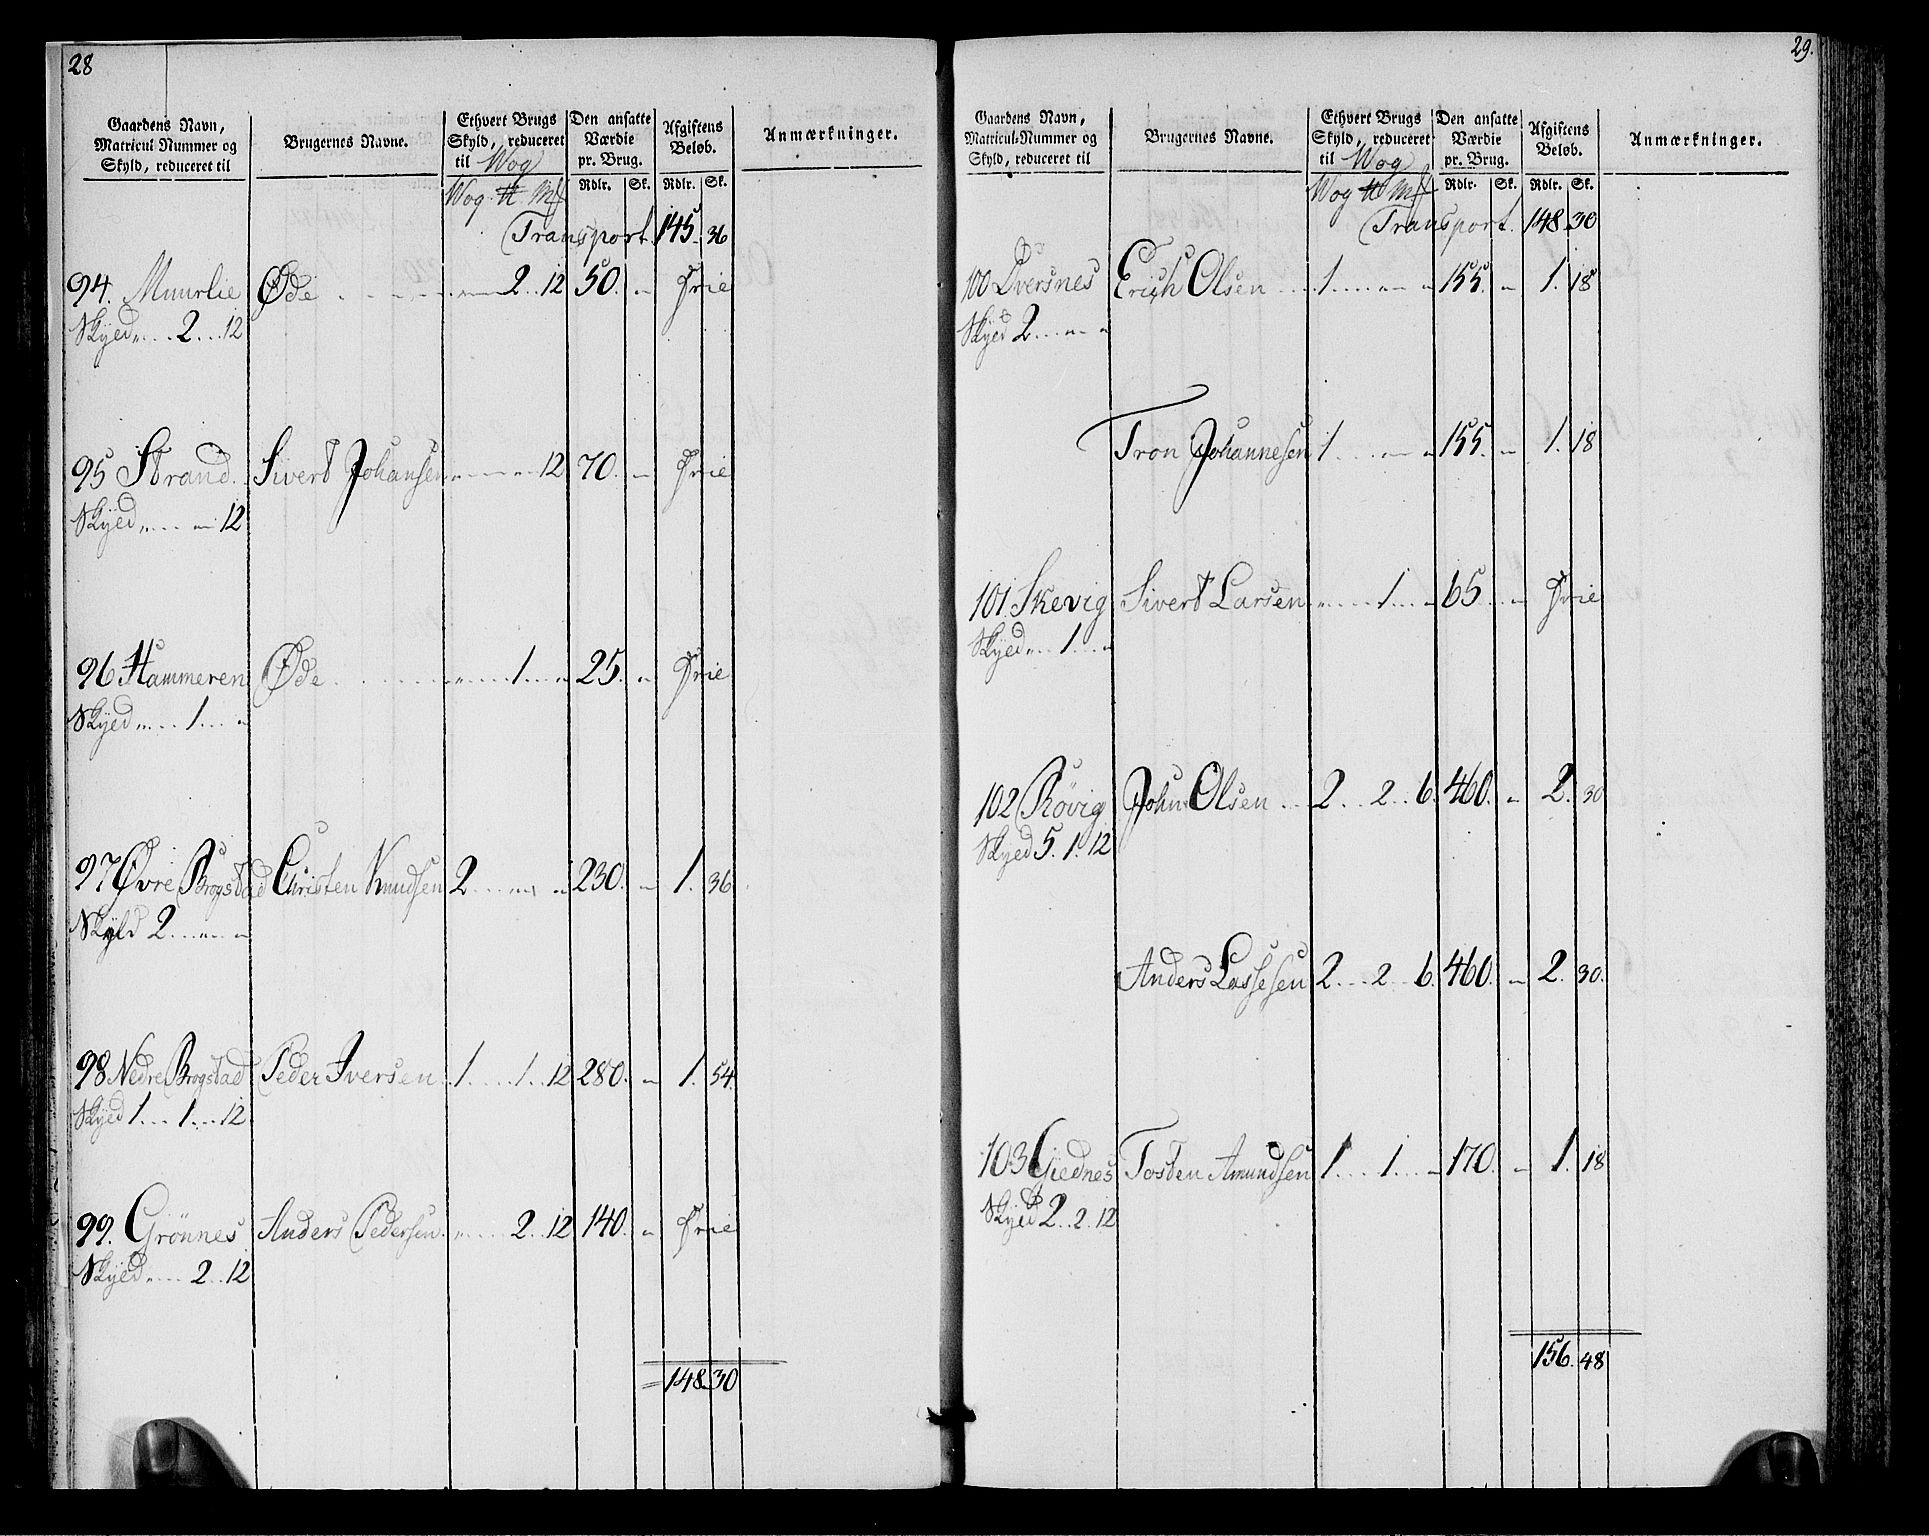 28
Gaardens Navn, Matricul Nummer og Skyld, reduceret til | Brugernes Navne. | Ethvert Brugs Skyld, reduceret til Wog | Den ansatte Værdie pr. Brug. | Afgiftens Beløb. | Anmærkninger.
Wog ℔ Mk | Rdlr. | Sk. | Rdlr. | Sk.
Transport. 145. 36
94. Muurlie Øde 2 12 50. Frie
Skyld 2 12
95 Strand. Sivert Johansen 12 70. Frie
Skyld 12
96 Hammeren Øde 1 25. Frie
Skyld 1
97 Øvre Brogstad Christen Knudsen 2 230. 1. 36
Skyld 2
98 Nedre Brogstad Peder Iversen 1 1 12 280. 1. 54
Skyld 1 1 12
99. Grønnes Anders Pedersen 2 12 140. Frie
Skyld 2 12
148. 30
29.
Gaardens Navn, Matricul-Nummer og Skyld, reduceret til | Brugernes Navne. | Ethvert Brugs Skyld, reduceret til Wog | Den ansatte Værdie pr. Brug. | Afgiftens Beløb. | Anmærkninger.
Wog ℔ Mk | Rdlr. | Sk. | Rdlr. | Sk.
Transport. 148. 30
100 Dversnes Erich Olsen 1 155. 1. 18
Skyld 2
Tron Johannesen 1 155. 1. 18
101 Skevig Sivert Larsen 1 65 Frie
Skyld 1
102 Røvig John Olsen 2 2 6. 460. 2. 30
Skyld 5. 1. 12
Anders Lassesen 2 2 6. 460. 2. 30.
103 Gjednes Tosten Amundsen 1 1 170. 1. 18
Skyld 2 2 12
156. 48